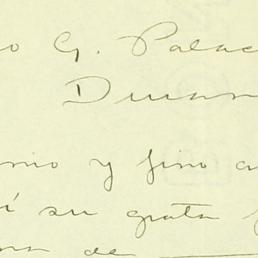 o G. Palac
Duran
nio y fino a
í su grata f
na de